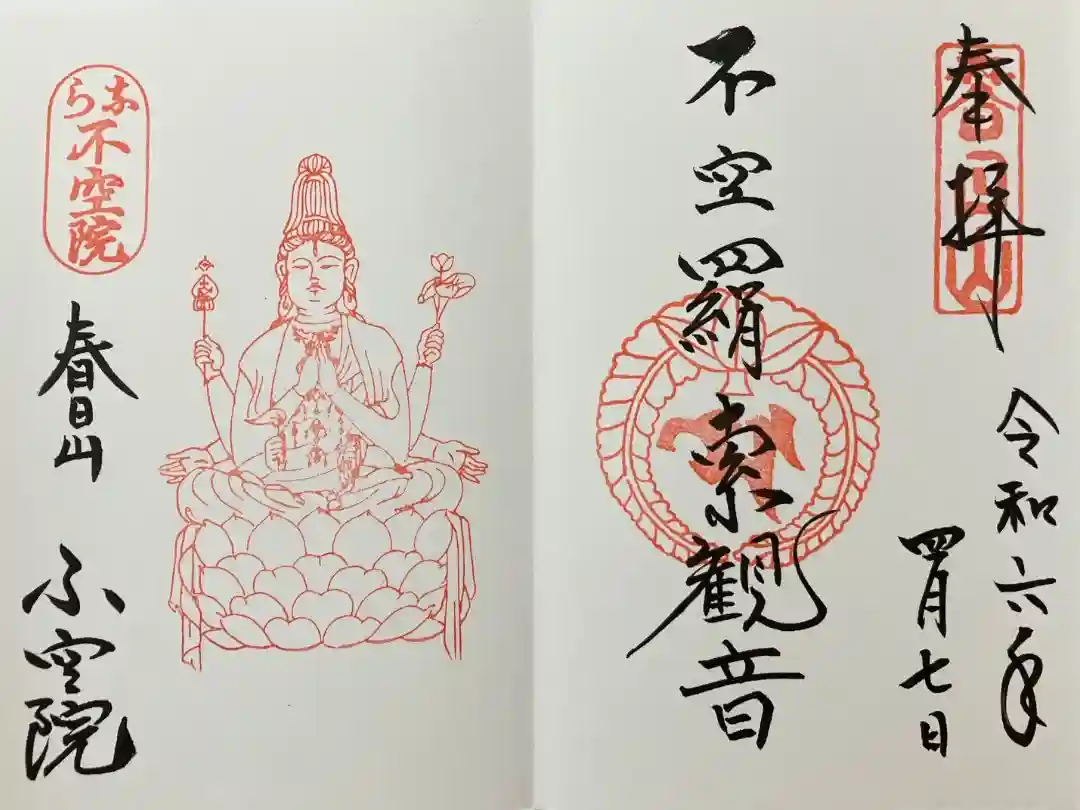 奉拝
春日山
令和六年
四月七日
不空羂索觀音
なら
不空院
春日山
不空院